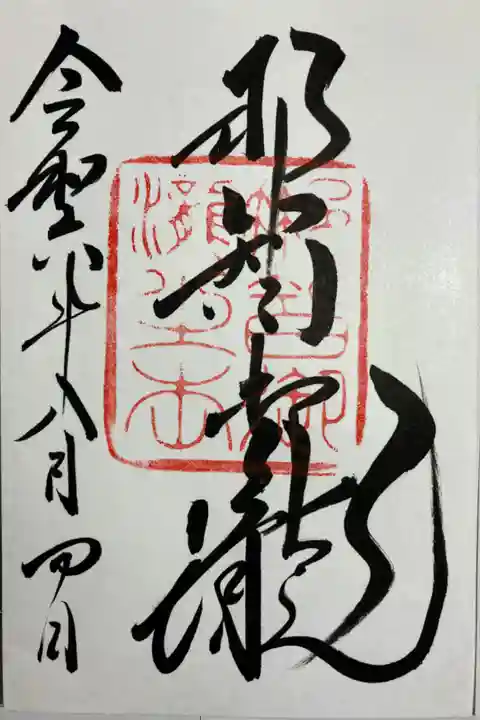 那智御瀧
令和六年八月四日